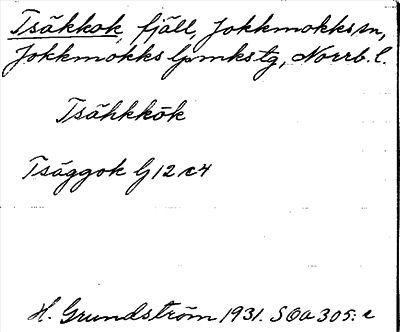 Tsäkkok, fjäll, Jokkmokks sn,
Jokkmokks lpmks tg, Norrb. l.
Tsähkkōk
Tsäggok G 12 c 4
H. Grundström 1931. SOa 305: e